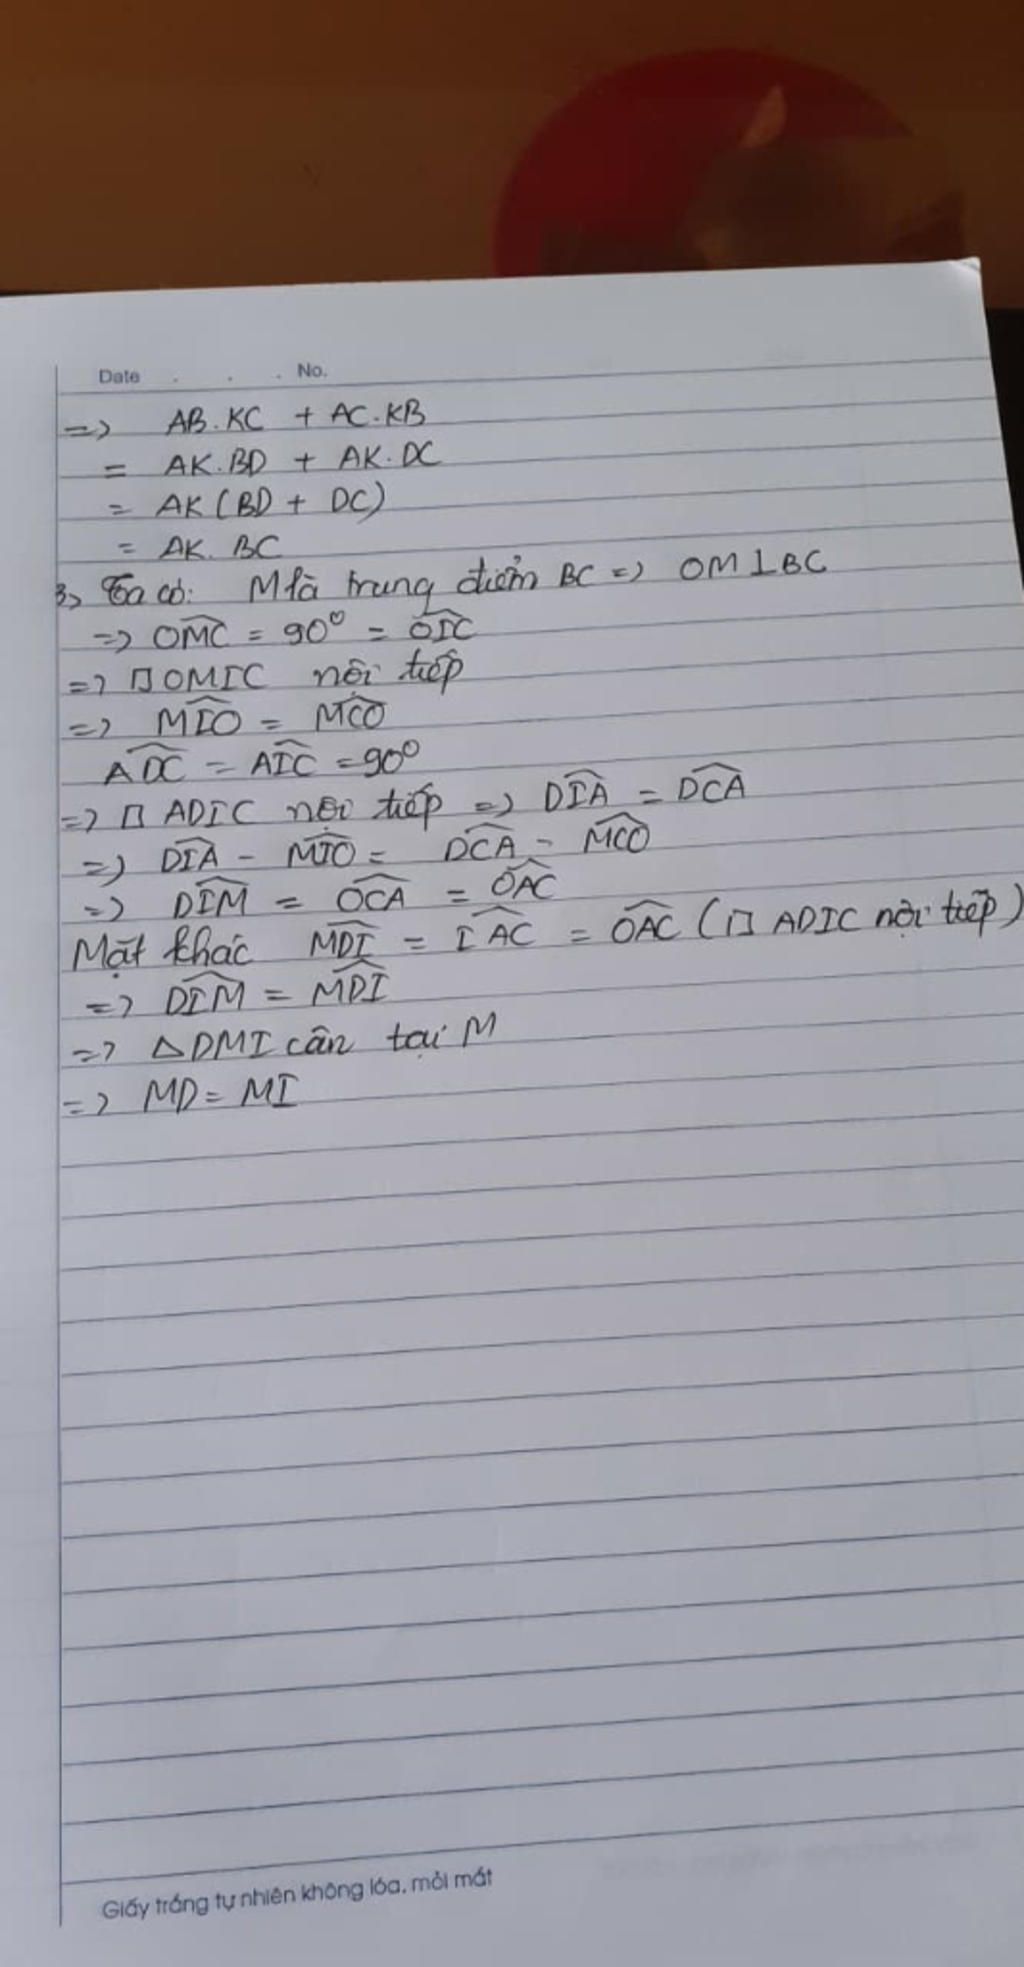 Date . . . No.
=> AB.KC + AC.KB
= AK.BD + AK.DC
= AK(BD + DC)
= AK.BC
3, Ta có: M là trung điểm BC => OM⊥BC
=> \widehat{OMC} = 90° = \widehat{OIC}
=> □OMIC nội tiếp
=> \widehat{MIO} = \widehat{MCO}
\widehat{ADC} = \widehat{AIC} = 90°
=> □ ADIC nội tiếp => \widehat{DIA} = \widehat{DCA}
=> \widehat{DIA} - \widehat{MIO} = \widehat{DCA} - \widehat{MCO}
=> \widehat{DIM} = \widehat{OCA} = \widehat{OAC}
Mặt khác \widehat{MDI} = \widehat{IAC} = \widehat{OAC} (□ ADIC nội tiếp)
=> \widehat{DIM} = \widehat{MDI}
=> △DMI cân tại M
=> MD = MI
Giấy trắng tự nhiên không lóa, mỏi mắt